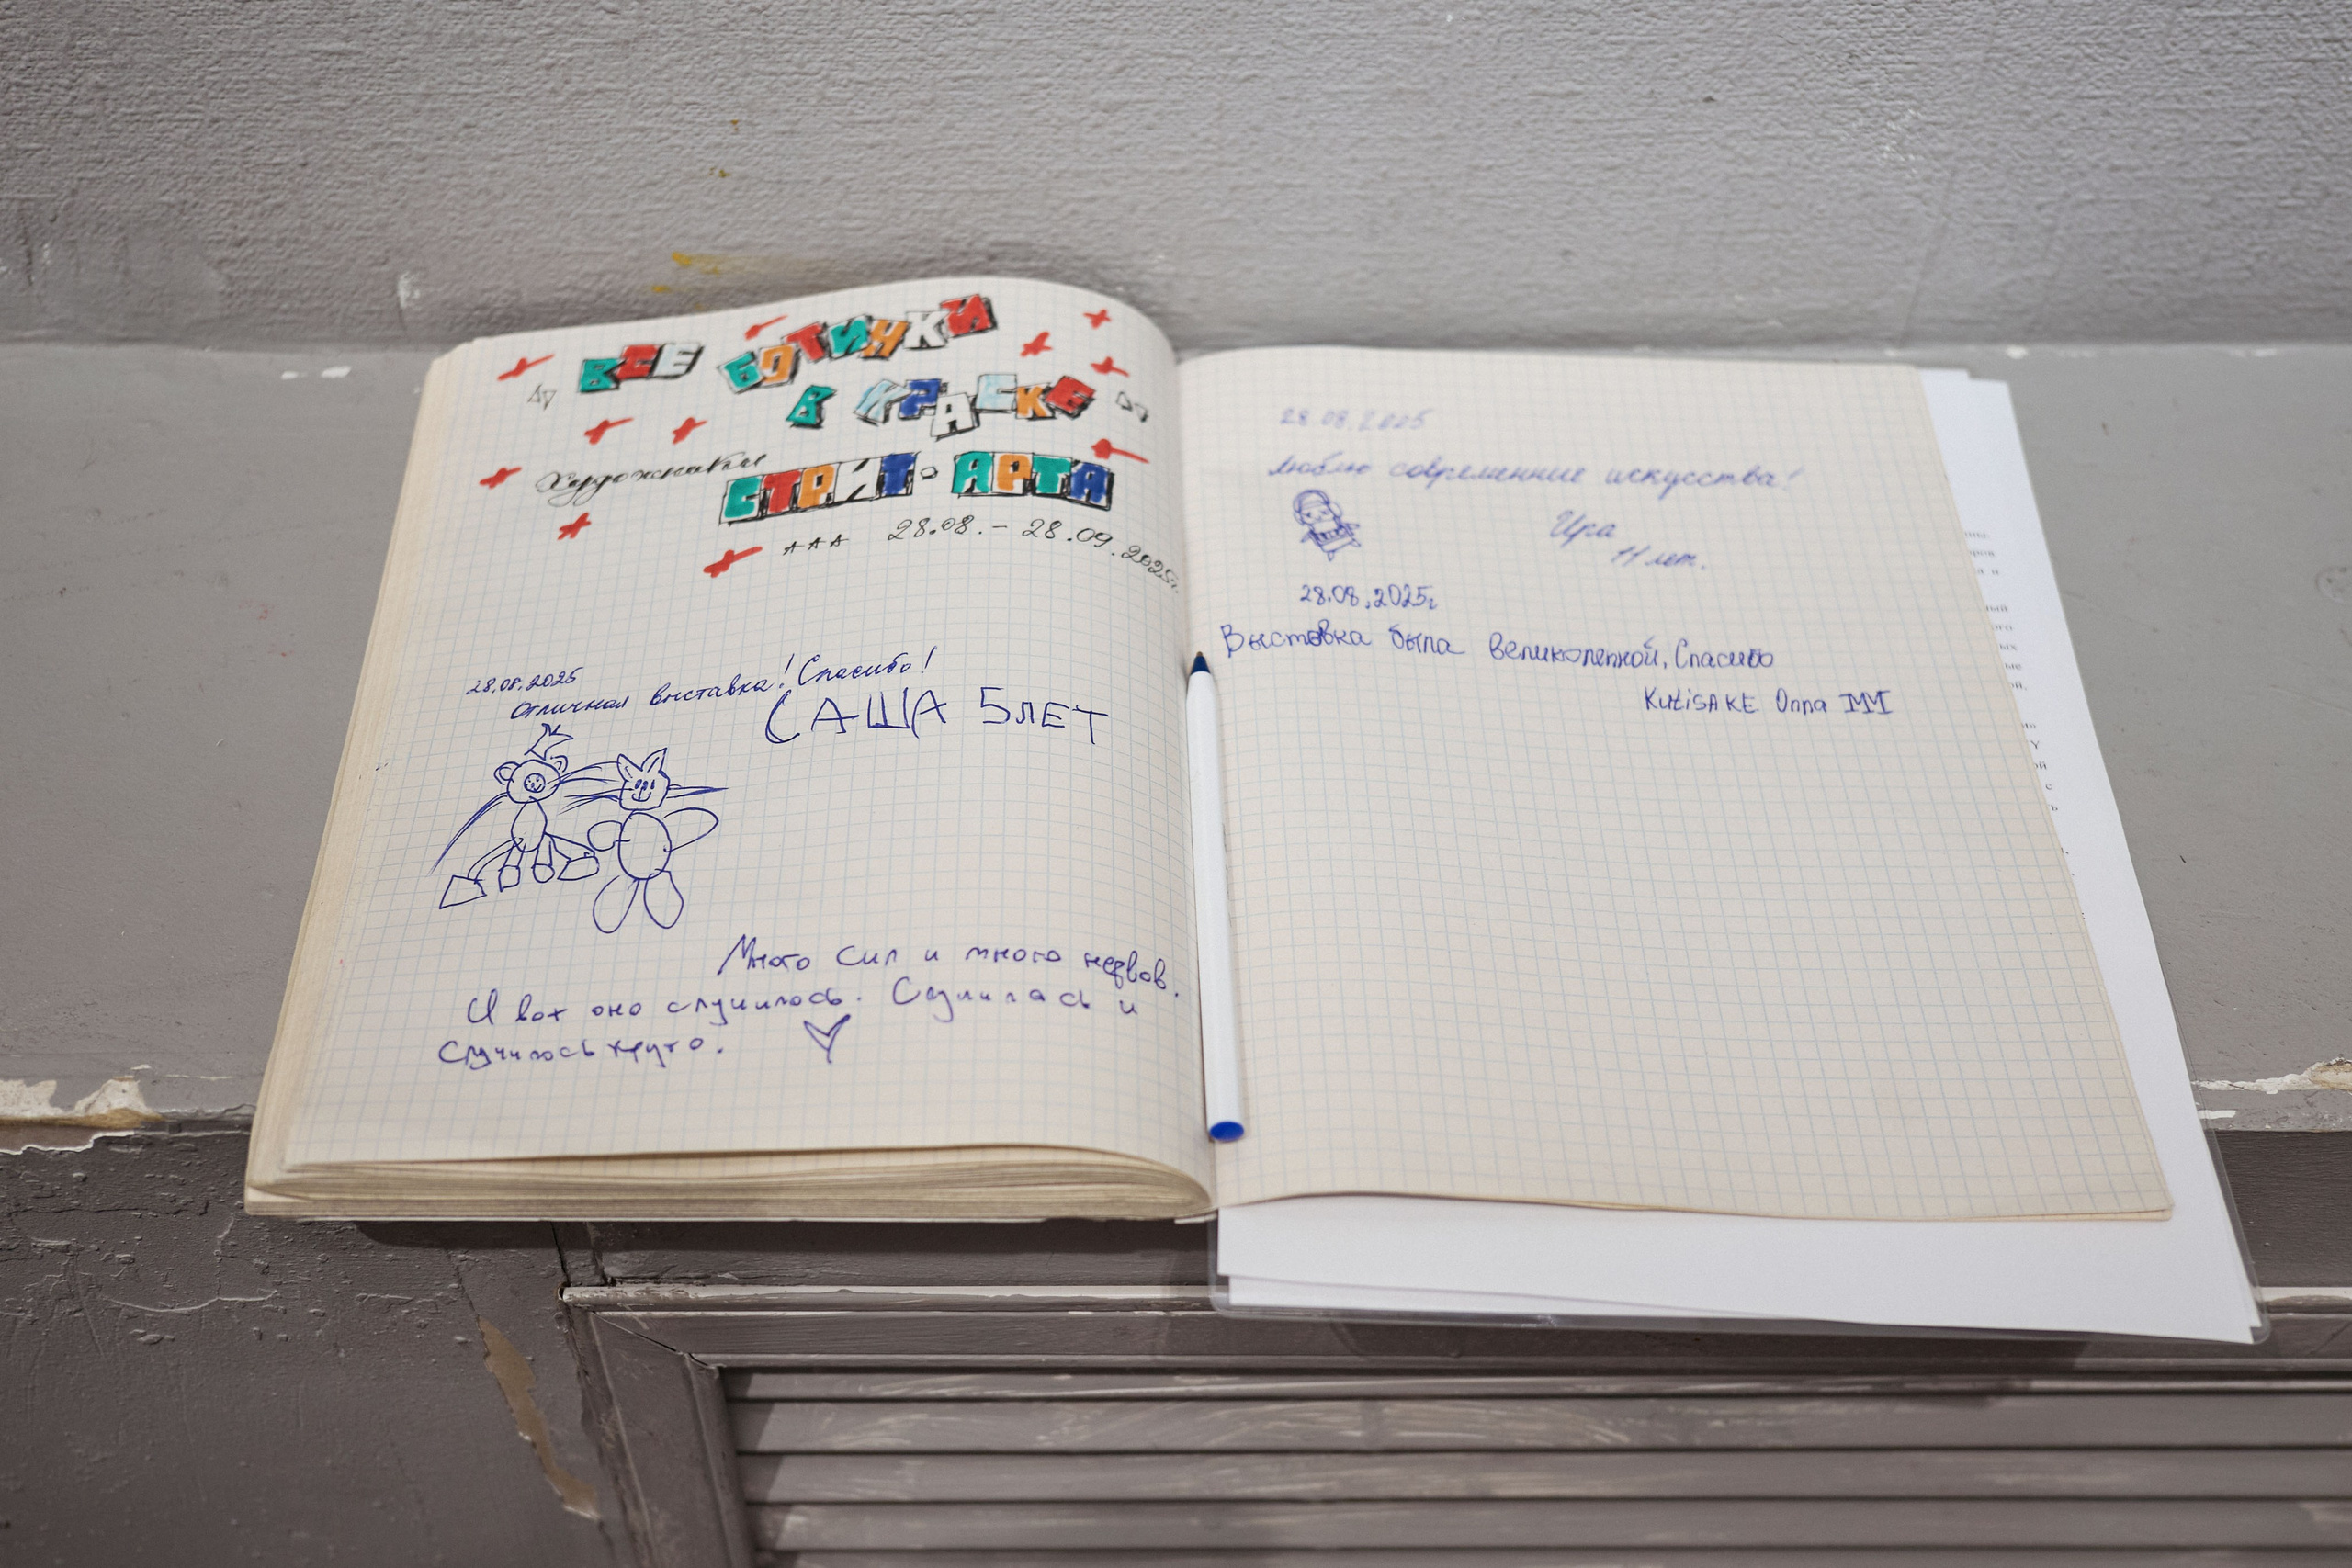 ВСЕ БОТИНКИ
В КРАСКЕ
Художники СТРИТ-АРТА
28.08. – 28.09.2025г.
28.08.2025
Отличная выставка! Спасибо!
САША 5ЛЕТ
Много сил и много нервов.
И вот оно случилось. Случилась и
Случилось круто.
28.08.2025
Люблю современные искусства!
Ира
11 лет.
28.08.2025г
Выставка была великолепной, Спасибо
KutiSAKE Onna